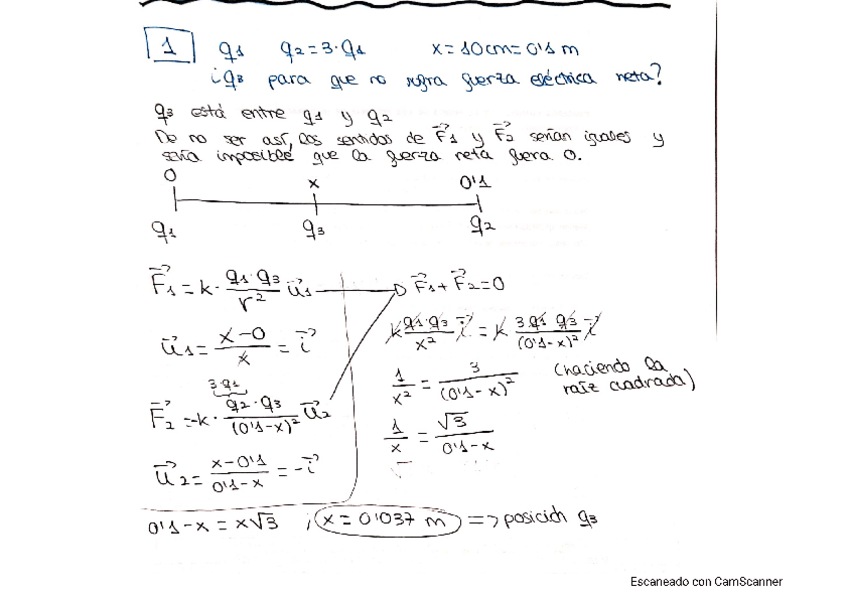 1 q1 q2 = 3·q1 x = 10cm = 0'1 m
¿q3 para que no sufra fuerza eléctrica neta?
q3 está entre q1 y q2
De no ser así, los sentidos de F⃗1 y F⃗2 serían iguales y
sería imposible que la fuerza neta fuera 0.
0 x 0'1
q1 q3 q2
F⃗1 = k· q1·q3 / r² u⃗1 → F⃗1 + F⃗2 = 0
u⃗1 = x-0 / x = i⃗
k q1·q3 / x² i⃗ = k 3·q1·q3 / (0'1-x)² i⃗
3·q1
F⃗2 = -k· q2·q3 / (0'1-x)² u⃗2
1 / x² = 3 / (0'1-x)² (haciendo la
raíz cuadrada)
1 / x = √3 / 0'1-x
u⃗2 = x-0'1 / 0'1-x = -i⃗
0'1-x = x√3 ; x = 0'037 m => posición q3
Escaneado con CamScanner